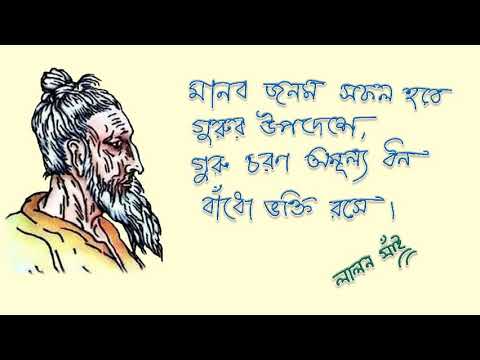 মানব জনম সফল হবে
গুরুর উপদেশে,
গুরু চরণ অমূল্য ধন
বাঁধো ভক্তি রসে।
লালন সাঁই